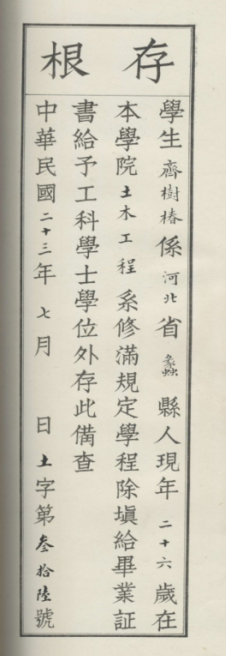 存根
學生齊樹椿係河北省蠡縣人現年二十六歲在
本學院土木工程系修滿規定學程除塡給畢業証
書給予工科學士學位外存此備查
中華民國二十三年七月 日土字第叁拾陸號